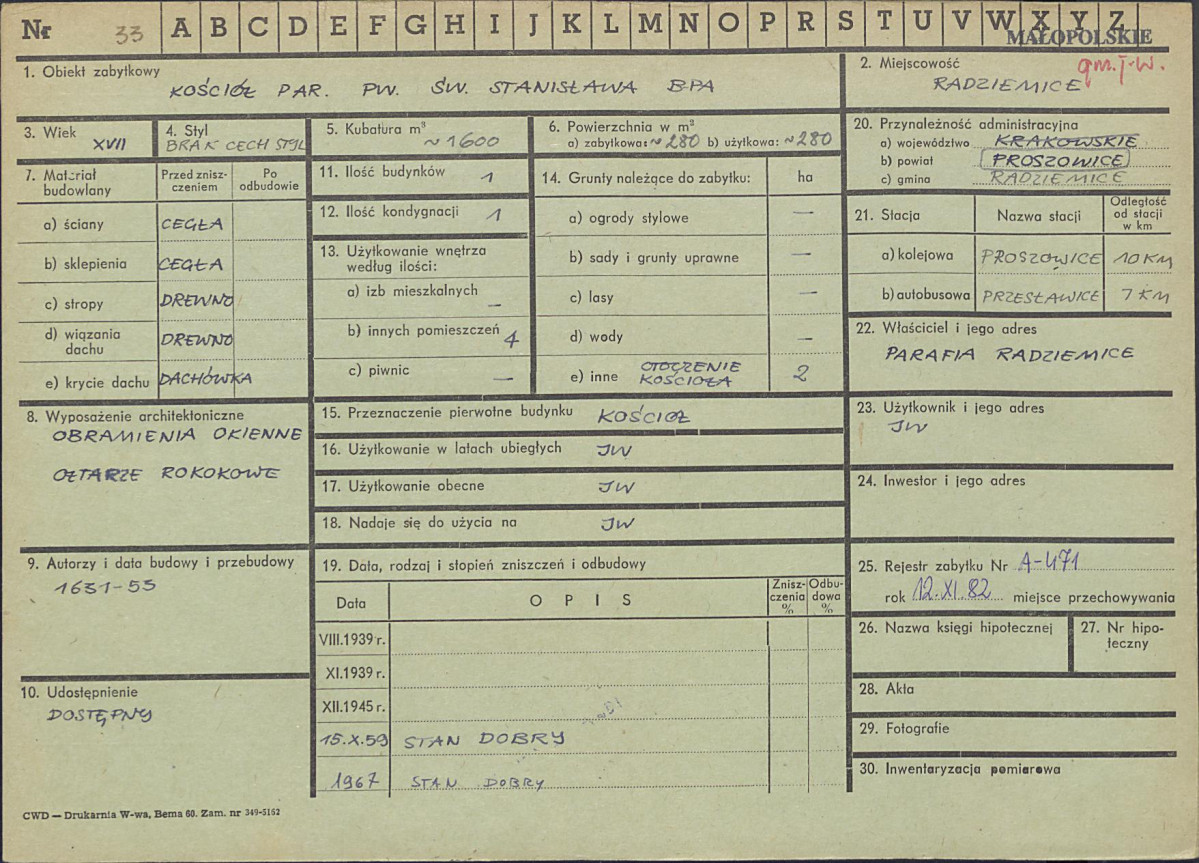 Nr 33 A B C D E F G H I J K L M N O P R S T U V W X Y Z
MAŁOPOLSKIE
1. Obiekt zabytkowy
KOŚCIÓŁ PAR. PW. ŚW. STANISŁAWA BPA
2. Miejscowość
gm. j.w.
RADZIEMICE
3. Wiek
XVII
4. Styl
BRAK CECH STYL
5. Kubatura m³
~1600
6. Powierzchnia w m²
a) zabytkowa: ~280 b) użytkowa: ~280
20. Przynależność administracyjna
a) województwo KRAKOWSKIE
b) powiat PROSZOWICE
c) gmina RADZIEMICE
7. Materiał budowlany
Przed zniszczeniem
Po odbudowie
a) ściany CEGŁA
b) sklepienia CEGŁA
c) stropy DREWNO
d) wiązania dachu DREWNO
e) krycie dachu DACHÓWKA
11. Ilość budynków 1
12. Ilość kondygnacji 1
13. Użytkowanie wnętrza według ilości:
a) izb mieszkalnych —
b) innych pomieszczeń 4
c) piwnic —
14. Grunty należące do zabytku: ha
a) ogrody stylowe —
b) sady i grunty uprawne —
c) lasy —
d) wody —
e) inne OTOCZENIE KOŚCIOŁA 2
21. Stacja
Nazwa stacji
Odległość od stacji w km
a) kolejowa PROSZOWICE 10 KM
b) autobusowa PRZESŁAWICE 7 KM
22. Właściciel i jego adres
PARAFIA RADZIEMICE
8. Wyposażenie architektoniczne
OBRAMIENIA OKIENNE
OŁTARZE ROKOKOWE
15. Przeznaczenie pierwotne budynku KOŚCIÓŁ
16. Użytkowanie w latach ubiegłych JW
17. Użytkowanie obecne JW
18. Nadaje się do użycia na JW
23. Użytkownik i jego adres
JW
24. Inwestor i jego adres
9. Autorzy i data budowy i przebudowy
1631-53
19. Data, rodzaj i stopień zniszczeń i odbudowy
Data
OPIS
Zniszczenia %
Odbudowa %
VIII.1939 r.
XI.1939 r.
XII.1945 r.
15.X.59 STAN DOBRY
1967 STAN DOBRY
25. Rejestr zabytku Nr A-471
rok 12.XI.82 miejsce przechowywania
26. Nazwa księgi hipotecznej
27. Nr hipoteczny
10. Udostępnienie
DOSTĘPNY
28. Akta
29. Fotografie
30. Inwentaryzacja pomiarowa
CWD — Drukarnia W-wa, Bema 60. Zam. nr 349-5162